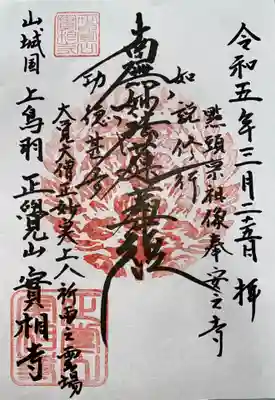 令和五年三月二十五日 拝
点頭宗祖像奉安之寺
如説修行
南無妙法蓮華経
功徳甚多
大覚大僧正妙実上人祈雨之霊場
山城国 上鳥羽 正覺山 實相寺